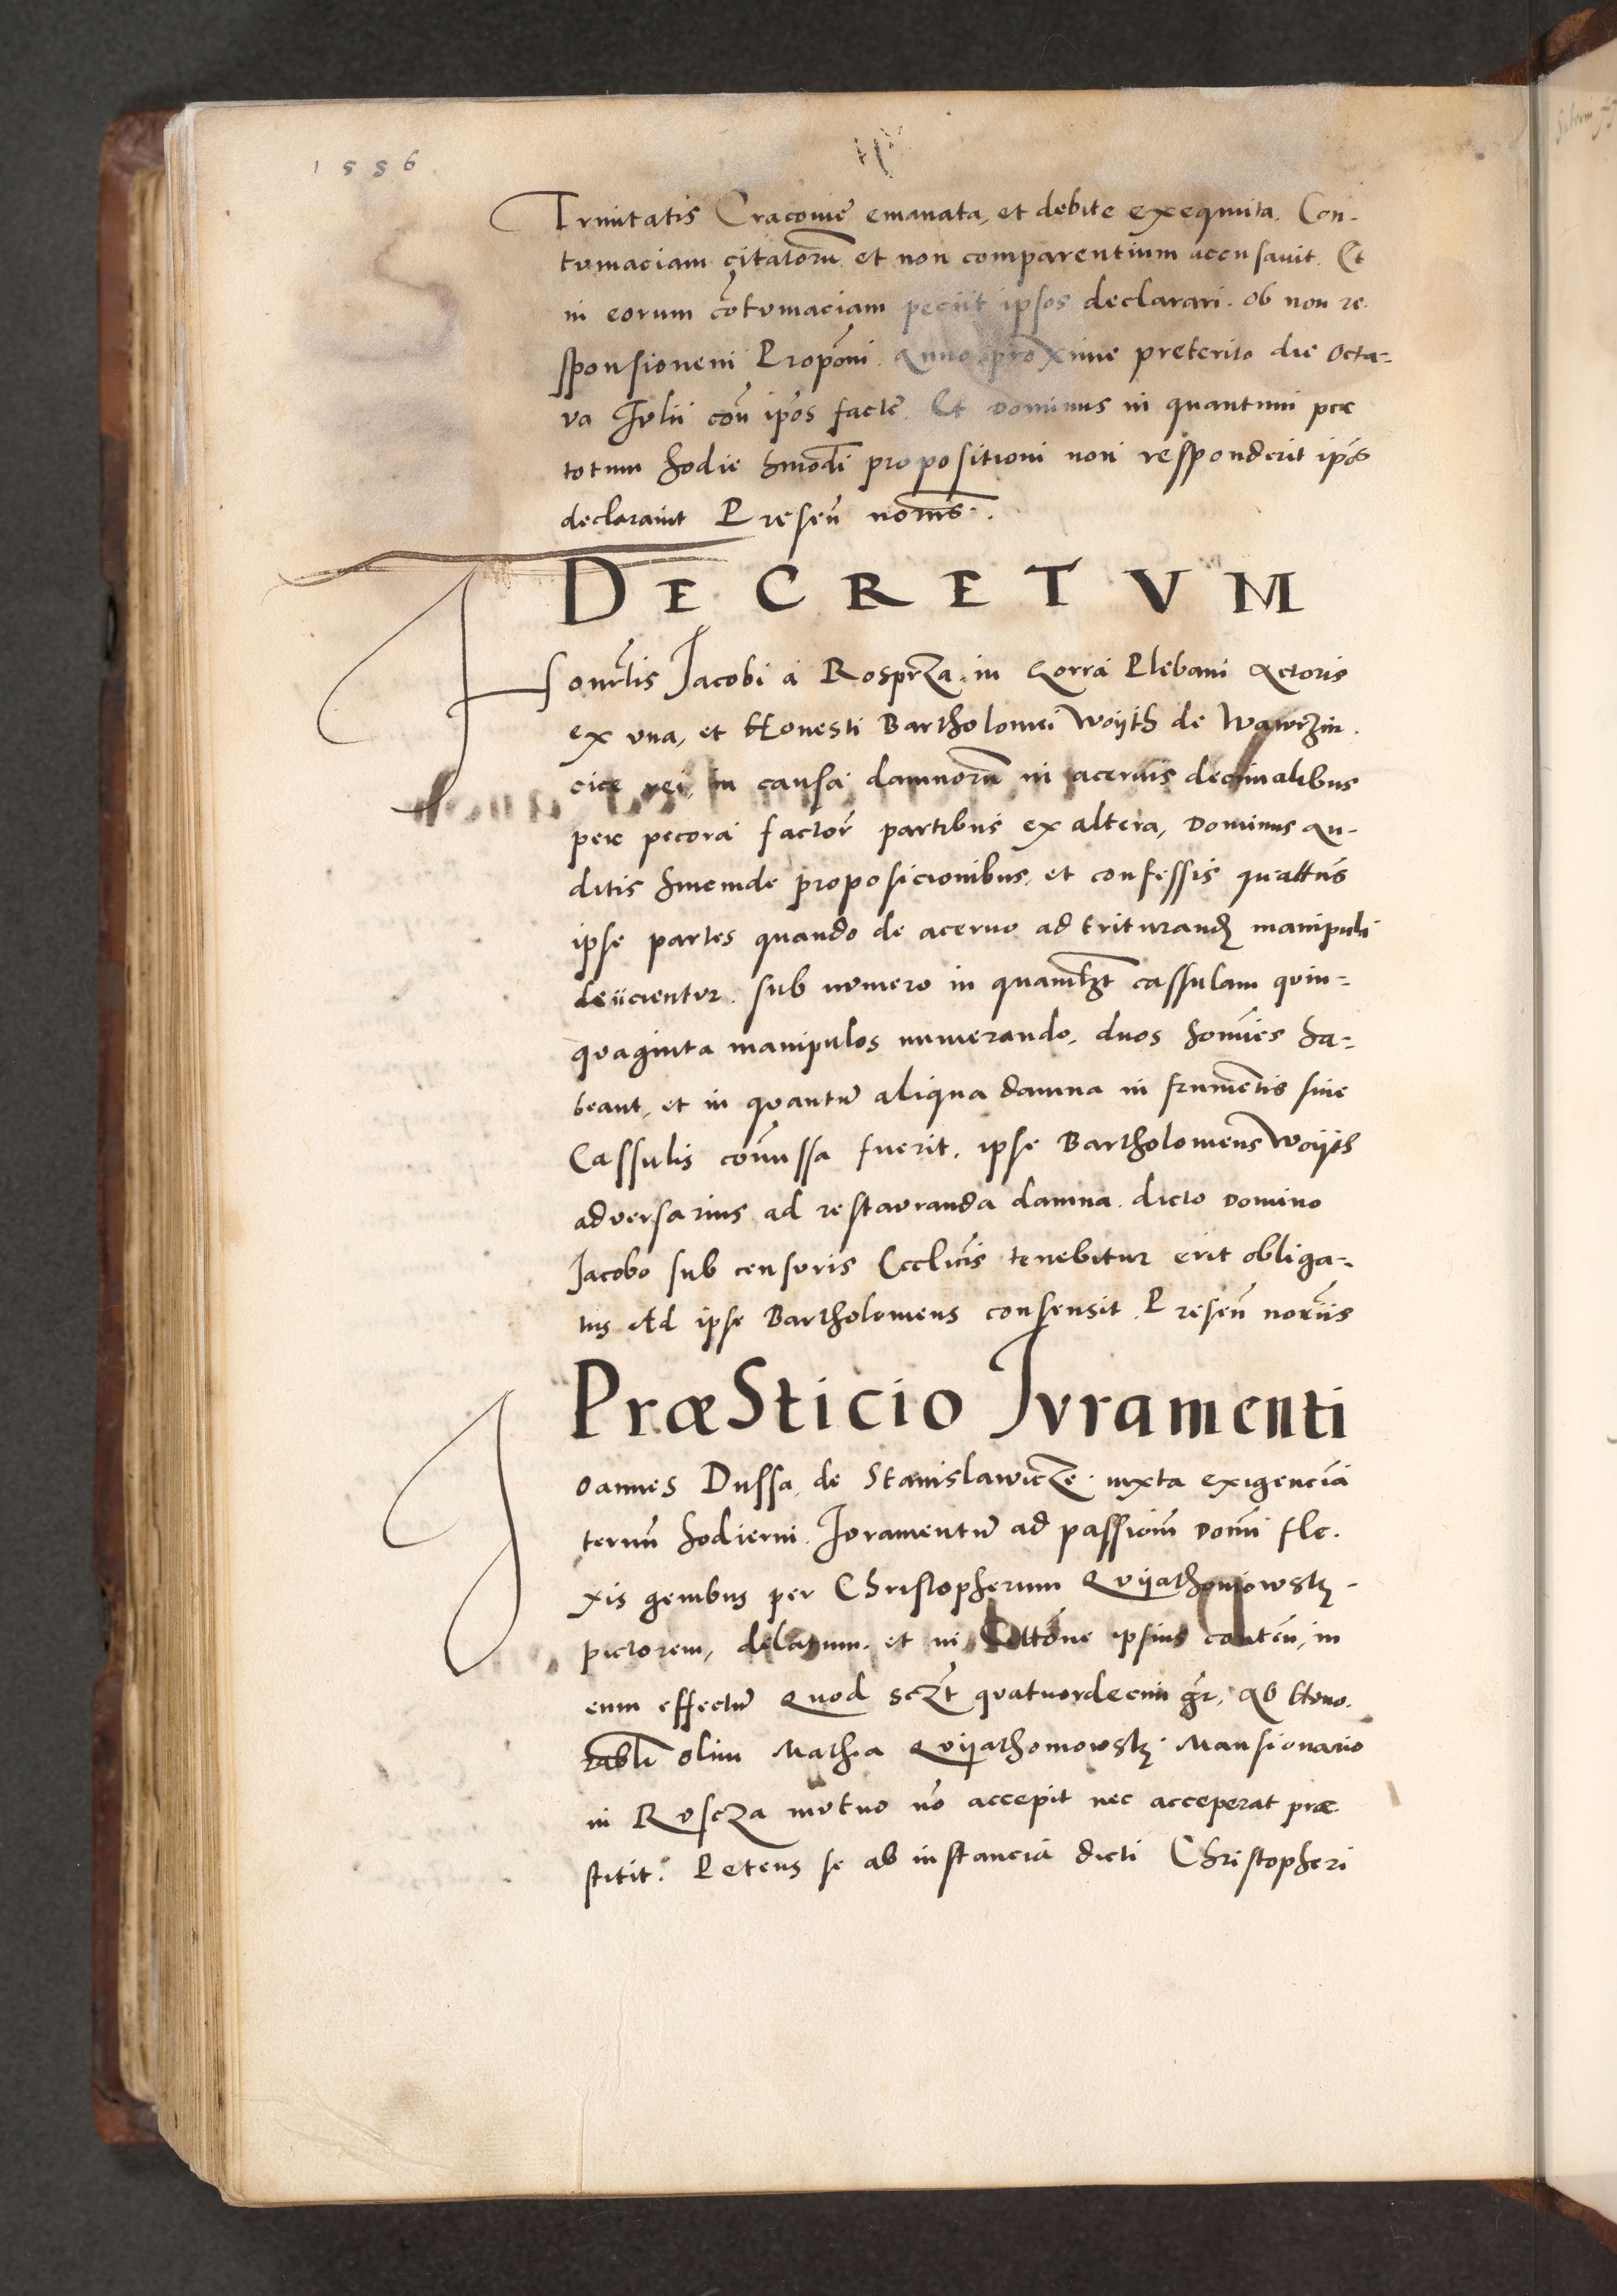 1556
Trinitatis Cracovie emanata, et debite exequuta. Con-
tumaciam citatorũ et non comparentium accusavit. Et
in eorum cõtumaciam peciit ipsos declarari. ob non re-
sponsionem Propõni. Anno proxime preterito die Octa-
va Julii coñ ipõs facte. Et Dominus in quantum per
totum hodie hmõdi propositioni non responderit ipõs
declaravit Preseñ
DECRETVM
Honorlis Jacobi a Rosprza. in Gorra Plebani Actoris
ex una, et Honesti Bartholomei Woyth de Wawrzin-
cice rei, in causa damnorũ in acervis decimalibus
per pecora factor̃ partibus ex altera, Dominus Au-
ditis hincinde proposicionibus, et confessis quattũs
ipse partes quando de acervo ad triturand manipuli
deiicientur. sub numero in quamlẽt cassulam quin-
quaginta manipulos numerando. duos homĩes ha-
beant, et in quantũ aliqua damna in frumẽtis sive
Cassulis cõmissa fuerit. ipse Bartholomeus Woyth
adversarius ad restauranda damna. dicto Domino
Jacobo sub censuris Eccliĉis tenebitur erit obliga-
tus Ad ipse Bartholomeus consensit. Preseñ
PræSticio Juramenti
Joannes Dussa, de Stanislawicze. iuxta exigenciã
termĩ hodierni. Juramentũ ad passionẽ Domĩ fle-
xis genibus per Christopherum Qvyathoniowsky-
pictorem, delatum. et in ipsius conteñ, in
eum effectũ Quod quatuordecim gr̃. Ab Hono-
rabli olim Mathia Qvyathomowsky. Mansionario
in Ruscza mutuo nõ accepit nec acceperat præ
stitit. Petens se ab instancia dicti Christopheri